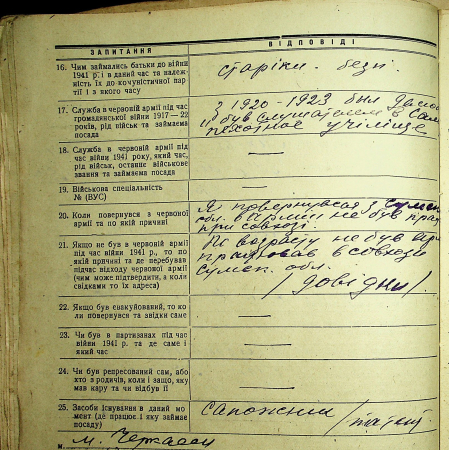 ЗАПИТАННЯ
ВІДПОВІДІ
16. Чим займались батьки до війни
1941 р. і в даний час та належ-
ність їх до комуністичної пар-
тії і з якого часу
старіки. безп.
17. Служба в червоній армії під час
громадянської війни 1917—22
років, рід військ та займаема
посада
З 1920-1923 був
и був слушателем в
пехотное училище
18. Служба в червоній армії під
час війни 1941 року, який час,
рід військ, останнє військове
звання та займаема посада
—
19. Військова спеціальність
№ (ВУС)
—
20. Коли повернувся з червоної
армії та по якій причині
повернувся з Сумск
обл. в армии не був
при совхозі.
21. Якщо не був в червоній армії
під час війни 1941 р., то по
якій причині та де перебував
підчас відходу червоної армії
(чим може підтвердити, а коли
свідками то їх адреса)
По возрасту не був
працював в совхозі
Сумск. обл.
/довідни/.
22. Якщо був евакуйований, то ко-
ли повернувся та звідки саме
—
23. Чи був в партизанах під час
війни 1941 р. та де саме і
який час
—
24. Чи був репресований сам, або
хто з родичів, коли і защо, яку
мав кару та чи відбув її
—
25. Засоби існування в даний мо-
мент (де працює і яку займає
посаду)
сапожник /патент/
м. Черкассы